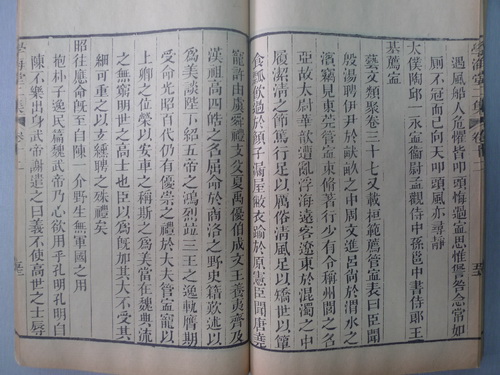 遇風船人危懼皆叩頭悔過寧思惟咎念常如
厠不冠而已向天叩頭風亦尋靜
太僕陶邱一永寧衞尉孟觀侍中孫邕中書侍郞王
基薦寧
藝文類聚卷三十七又載桓範薦管寧表曰臣聞
殷湯聘伊尹於畎畝之中周文進呂尚於渭水之
濱竊見東莞管寧束脩著行少有令稱州閭之名
亞故太尉華歆遭亂浮海遠客遼東於混濁之中
履潔清之節篤行足以厲俗清風足以矯世以簞
食瓢飮過於顔子漏屋蔽衣踰於原憲臣聞唐堯
寵許由虞舜禮支父夏禹優伯成文王養夷齊及
漢祖高四皓之名屈命於商洛之野史籍歎述以
爲美談陛下紹五帝之鴻烈並三王之逸軌膺期
受命光昭百代仍有優崇之禮於大夫管寧寵以
上卿之位榮以安車之稱斯之爲美當在魏典流
之無窮明世之高士也臣以爲旣加其大不受其
細可重之以玄纁聘之殊禮矣
昭往應命旣至自陳一介野生無軍國之用
抱朴子逸民篇魏武帝乃心欲用乎孔明孔明自
陳不樂出身武帝謝遣之曰義不使高世之士辱
學海堂三集